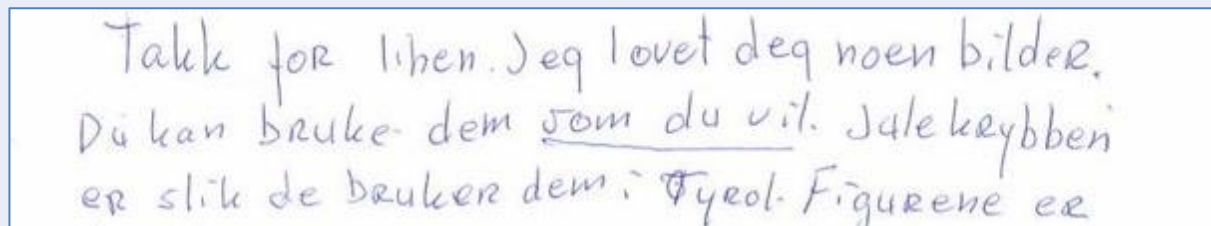 Takk for liken. Jeg lovet deg noen bilder.
Du kan bruke dem som du vil. Julekrybben
er slik de bruker dem i Tyrol. Figurene er